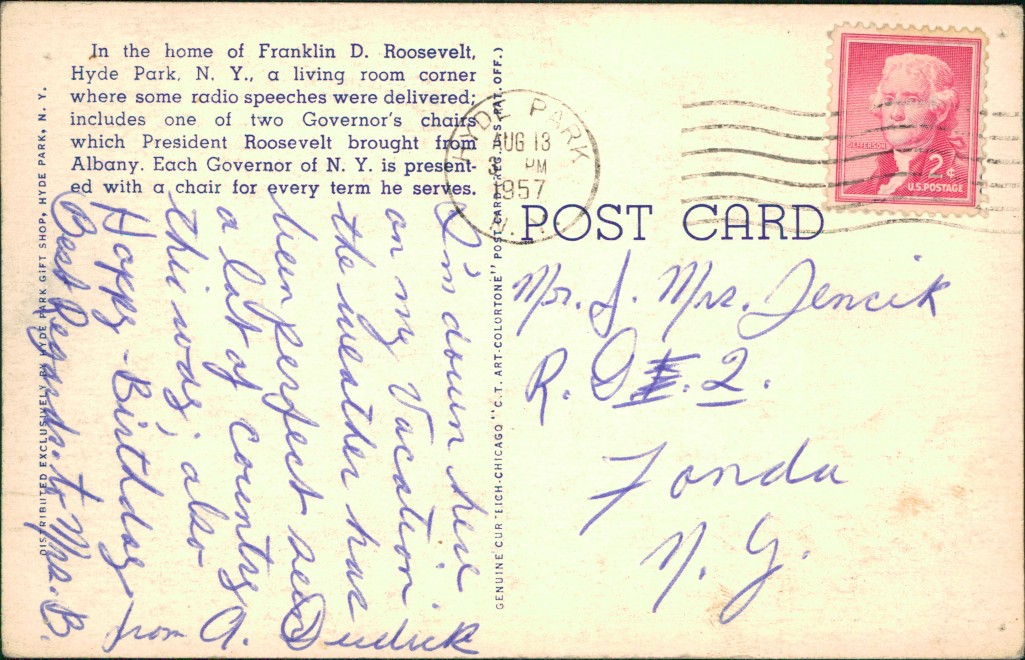 In the home of Franklin D. Roosevelt,
Hyde Park, N. Y., a living room corner
where some radio speeches were delivered;
includes one of two Governor's chairs
which President Roosevelt brought from
Albany. Each Governor of N. Y. is present-
ed with a chair for every term he serves.
DISTRIBUTED EXCLUSIVELY BY HYDE PARK GIFT SHOP, HYDE PARK, N. Y.
I'm down here
on my Vacation.
the weather has
been perfect seen
a lot of country
this way, also
Happy-Birthday
Best Regards to Mrs. B.
from A.
GENUINE CURTEICH-CHICAGO "C.T. ART-COLORTONE" POST CARD (REG. U.S. PAT. OFF.)
HYDE PARK
AUG 13
3 PM
1957
N.Y.
JEFFERSON
2¢
U.S. POSTAGE
POST CARD
Mr. & Mrs. Jencik
R. D. 2.
Fonda
N. Y.